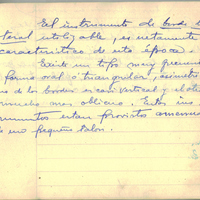 El instrumento de borde la
teral retocable, es netamente
caracteristico de esta época.
Existe un tipo muy frecuen
forma oral ó triangular, asimetri
de los bordes es casi vertical y el otro
mucho mas oblicuo. Estos ins
trumentos estan provistos
de un pequeño talon.